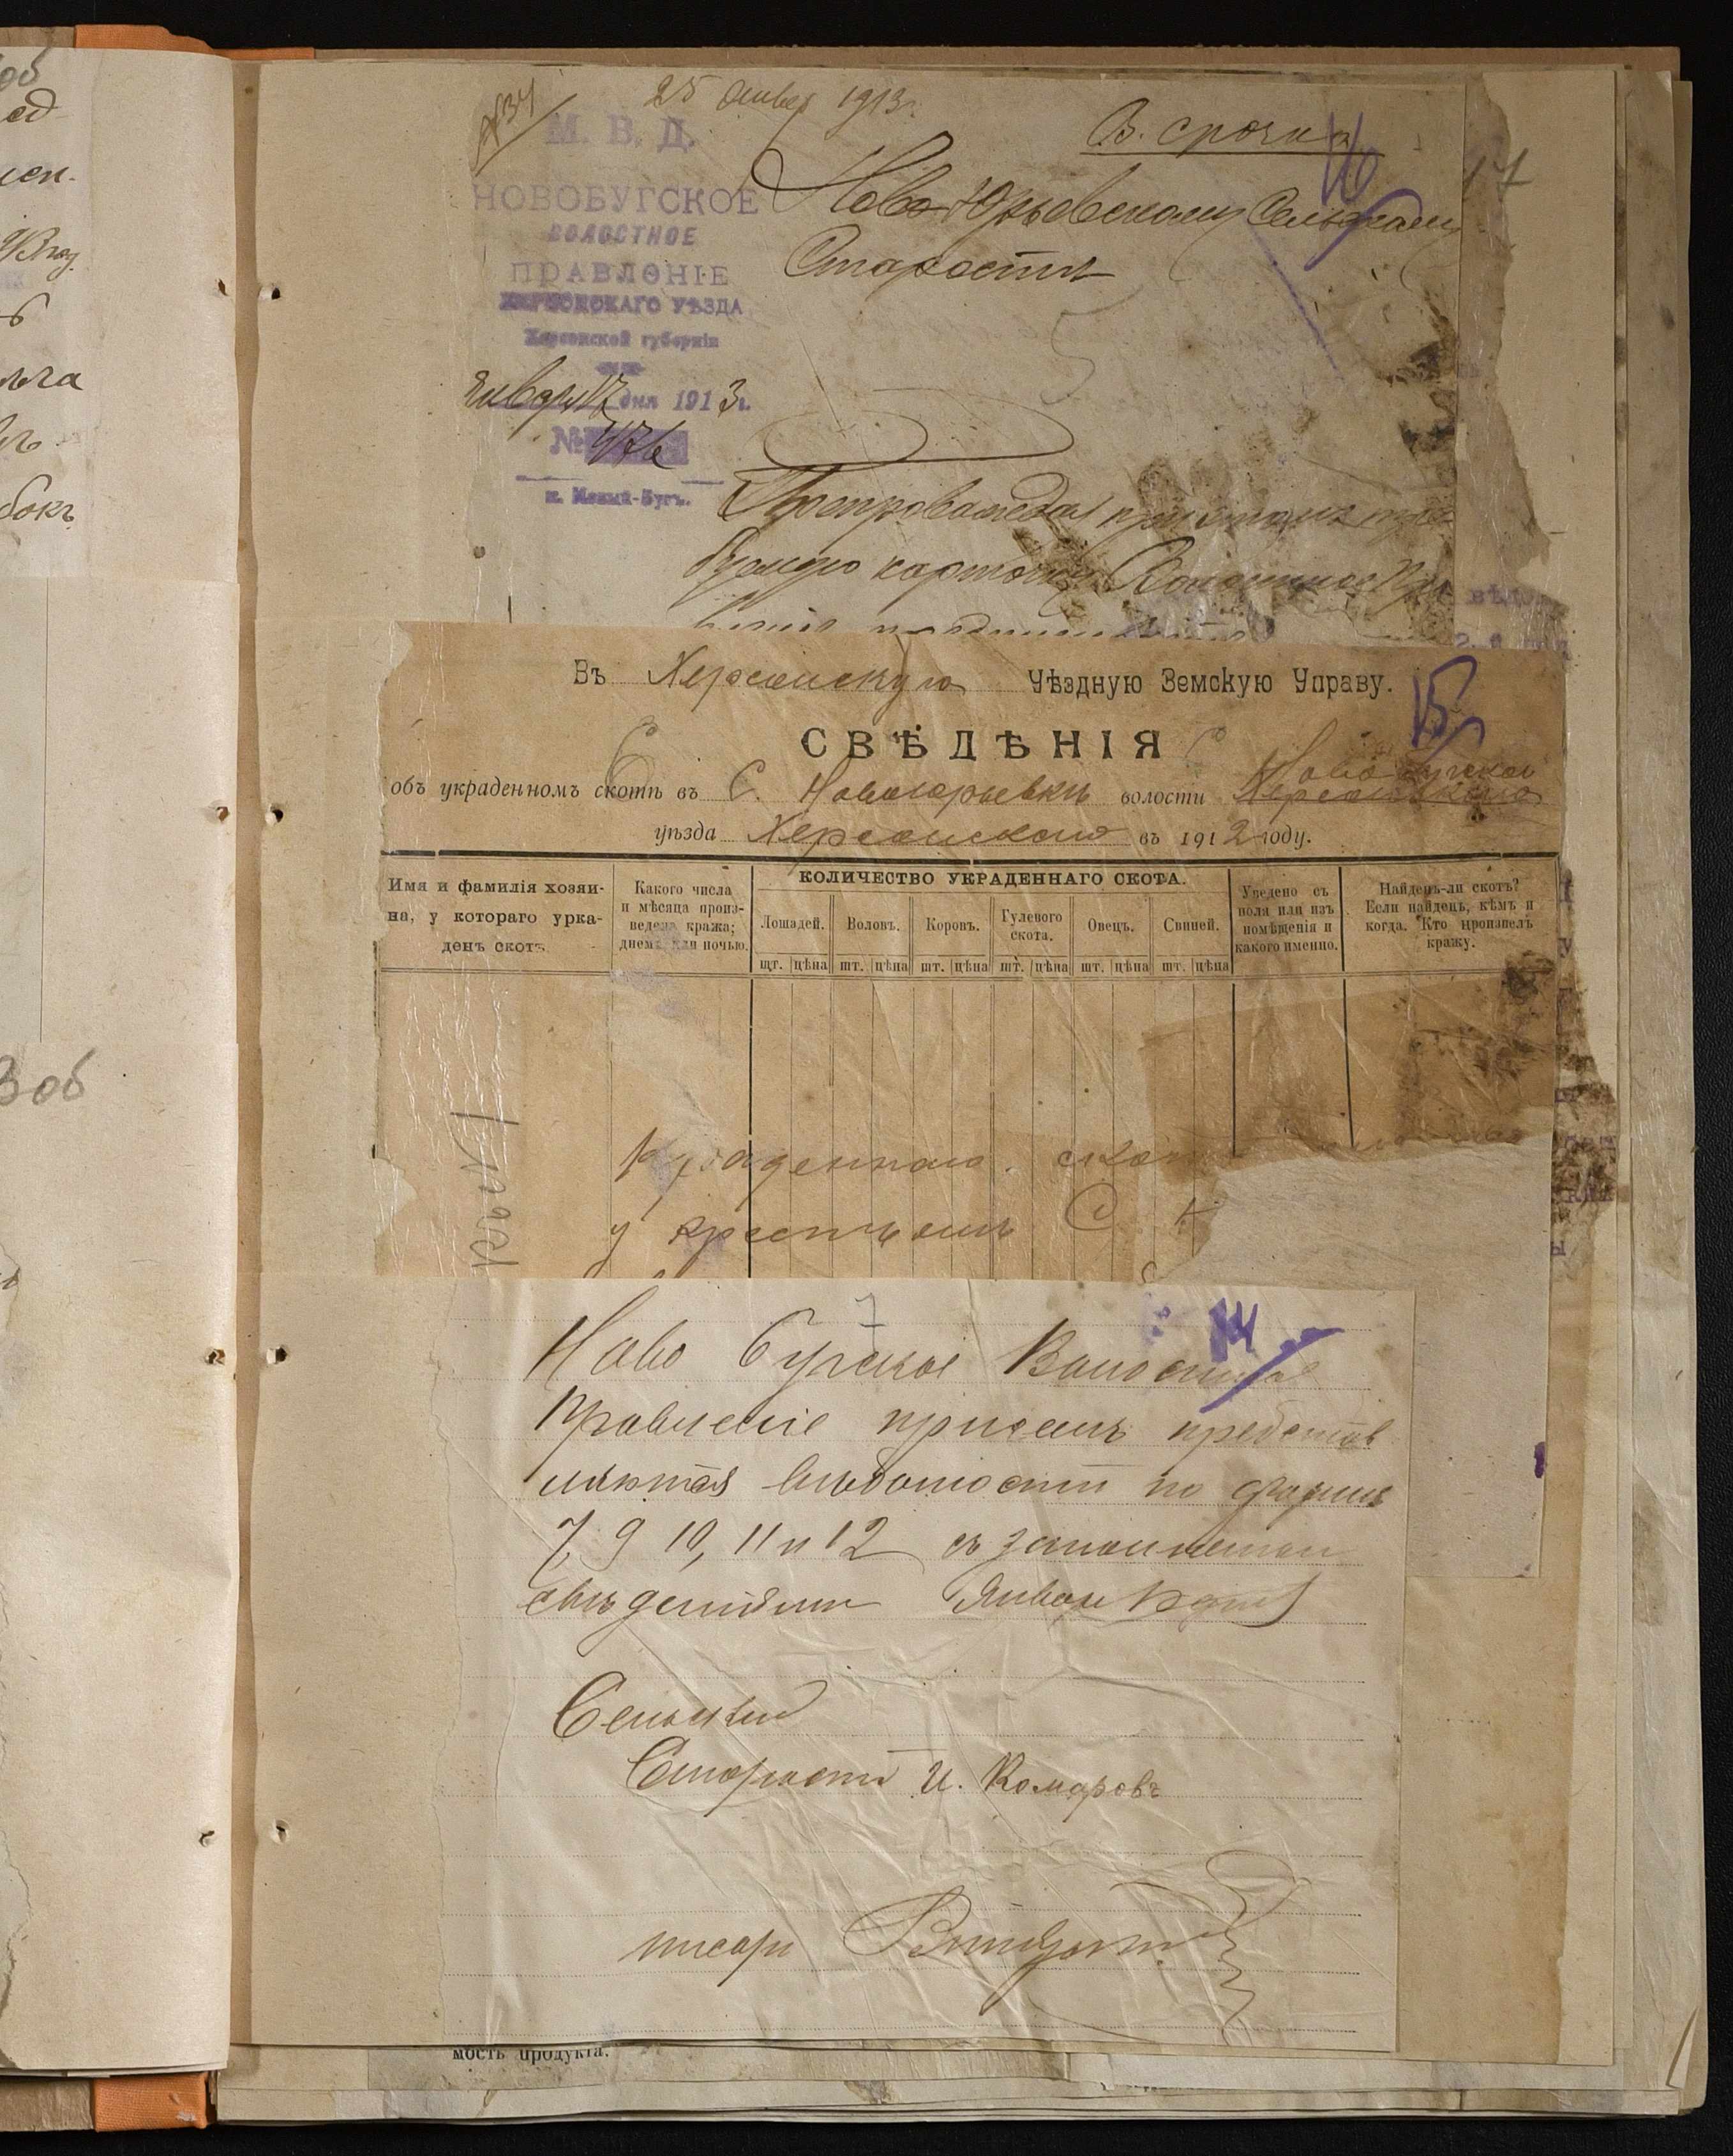 25 января 1913 г.
В. срочно
16
17
М. В. Д.
НОВОБУГСКОЕ
ВОЛОСТНОЕ
ПРАВЛЕНІЕ
ХЕРСОНСКАГО УѢЗДА
Херсонской губерніи
Января 17 дня 1913 г.
№ 476
м. Новый-Бугъ.
Ново Юрьевскому Сельскому
Старостѣ
5
Препровождая при этомъ
карточку Волостное Пра
вленіе
Въ Херсонскую Уѣздную Земскую Управу.
15
6
СВѢДѢНІЯ
Ново Бугской
объ украденномъ скотѣ въ С. Новоюрьевкѣ волости Херсонскаго
уѣзда Херсонскаго въ 1912 году.
Имя и фамилія хозяи-
на, у котораго укра-
денъ скотъ.
Какого числа
и мѣсяца произ-
ведена кража;
днемъ или ночью.
КОЛИЧЕСТВО УКРАДЕННАГО СКОТА.
Лошадей. Воловъ. Коровъ. Гулевого скота. Овецъ. Свиней.
шт. цѣна шт. цѣна шт. цѣна шт. цѣна шт. цѣна шт. цѣна
Уведено съ
поля или изъ
помѣщенія и
какого именно.
Найденъ-ли скотъ?
Если найденъ, кѣмъ и
когда. Кто произвелъ
кражу.
украденнаго скота
у крестьянъ С
7
14
Ново Бугское Волостное
Правленіе присемъ представ
ляются вѣдомости по формѣ
7, 9 10, 11 и 12 съ
свѣденіями Января
Сельскій
Староста И. Комаровъ
писарь
3 об
мость продукта.